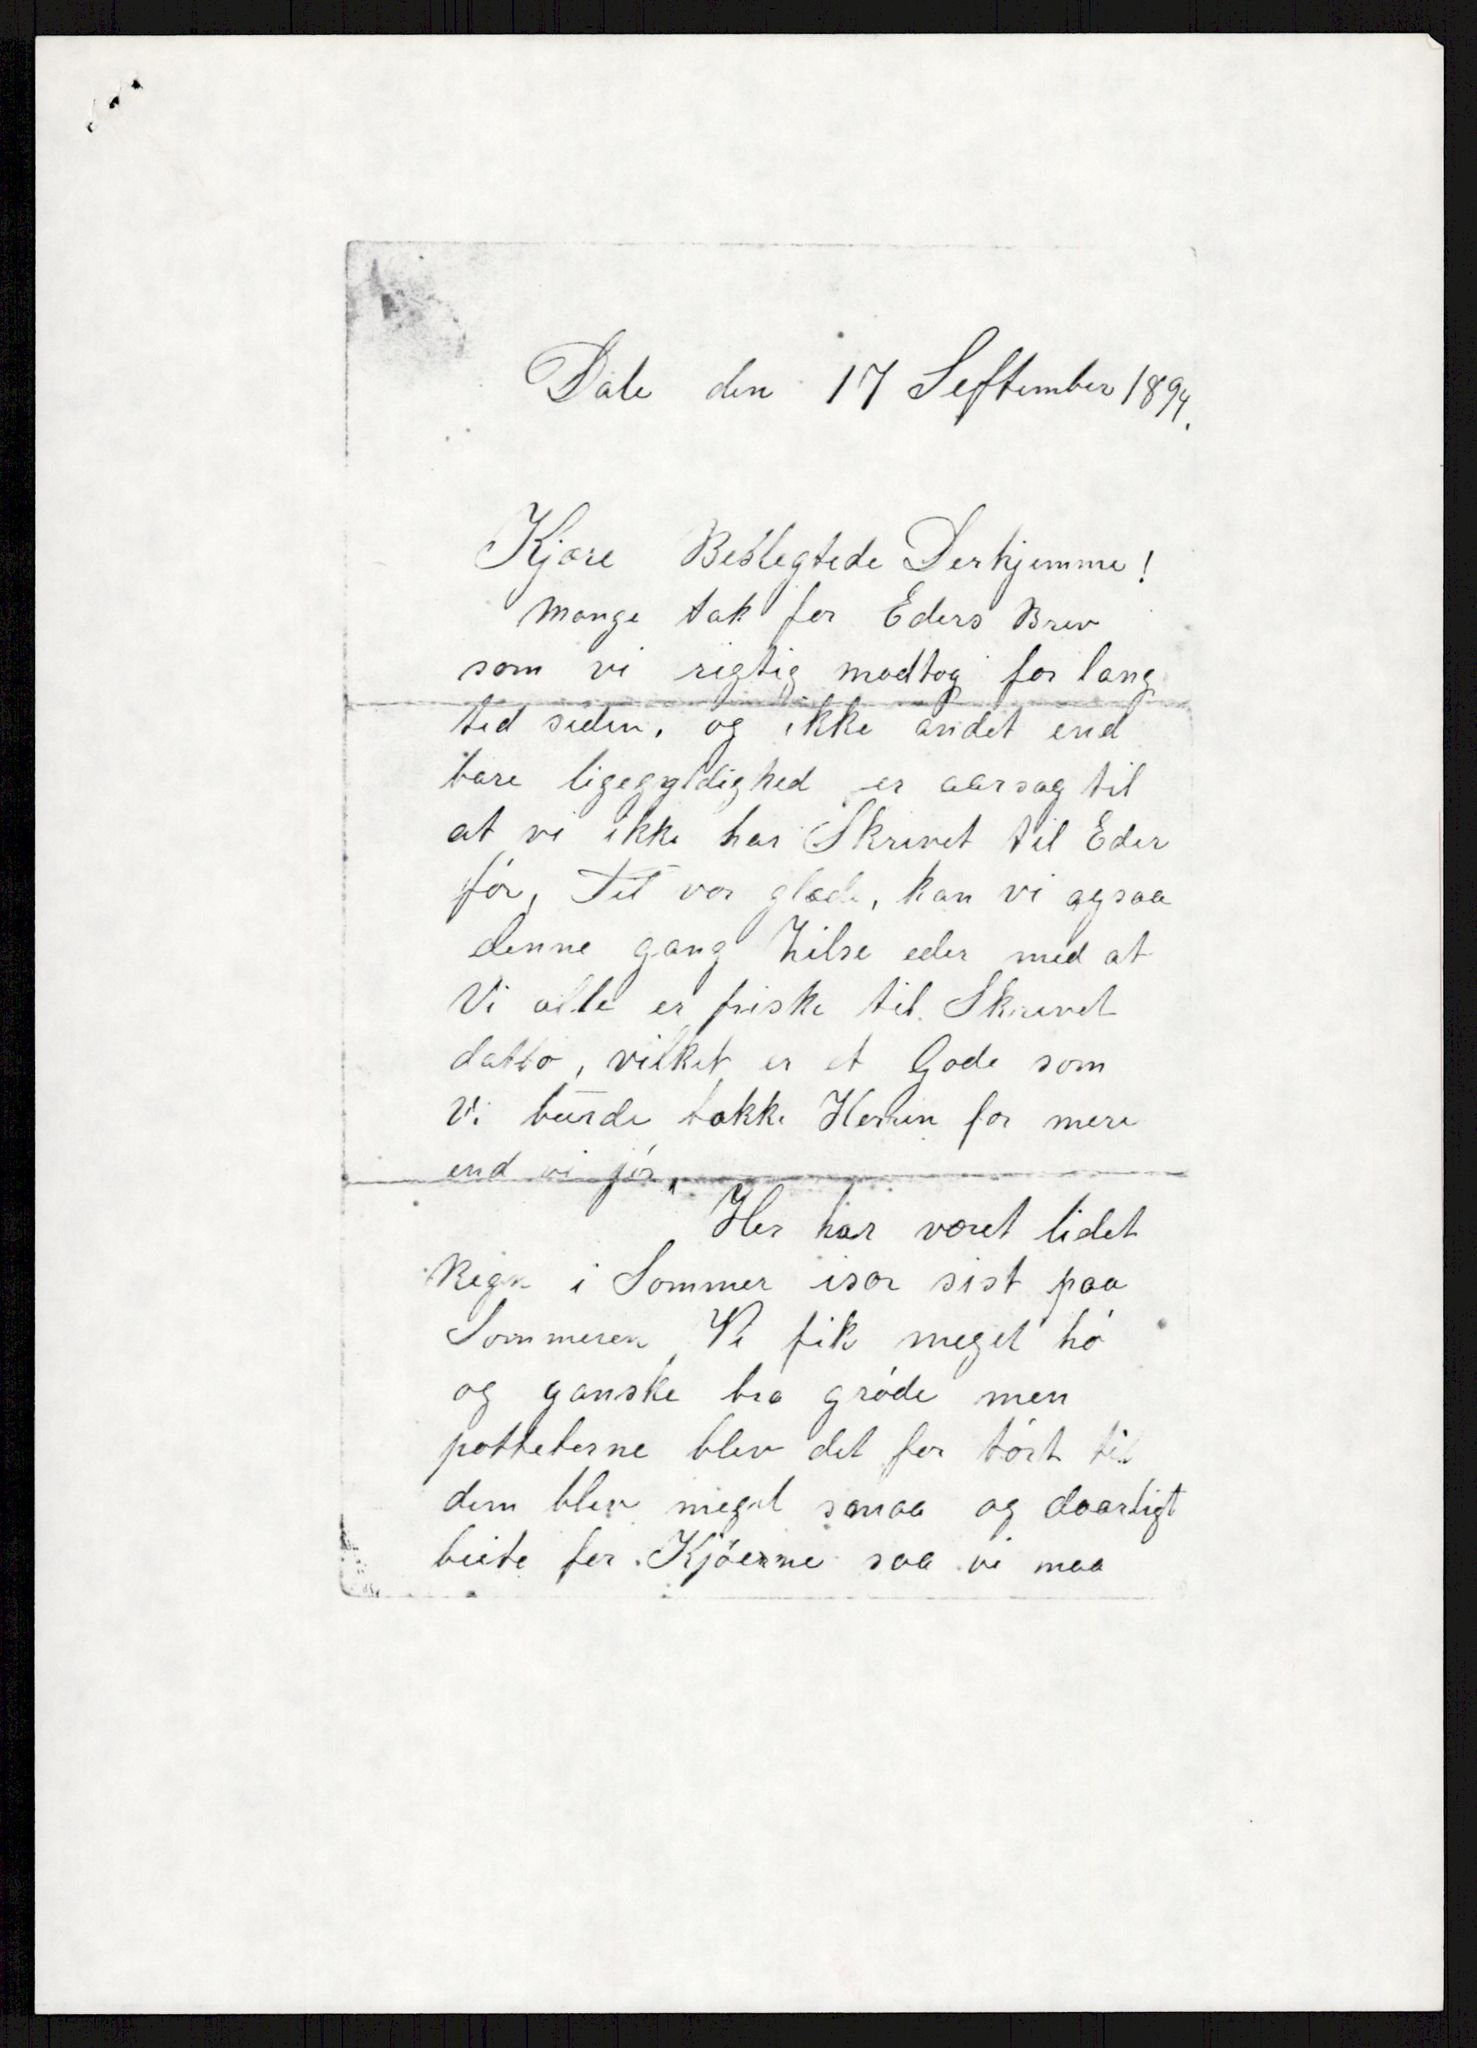 Dale den 17 September 1894.
Kjære Beslegtede Derhjemme!
Mange tak for Eders Brev
som vi rigtig modtog for lang
tid siden, og ikke andet end
bare ligegyldighed er aarsag til
at vi ikke har Skrevet til Eder
før, Til vor glæde, kan vi agsaa
denne gang hilse eder med at
Vi alle er friske til Skrivet
datto, vilket er et Gode som
Vi burde takke Herren for mere
end vi jør,
Her har været lidet
Regn i Sommer især sist paa
Sommeren, Vi fik meget hø
og ganske bra grøde men
potteterne blev det for tørt til
dem blev meget smaa og daarligt
beite for Kjøerne saa vi maa